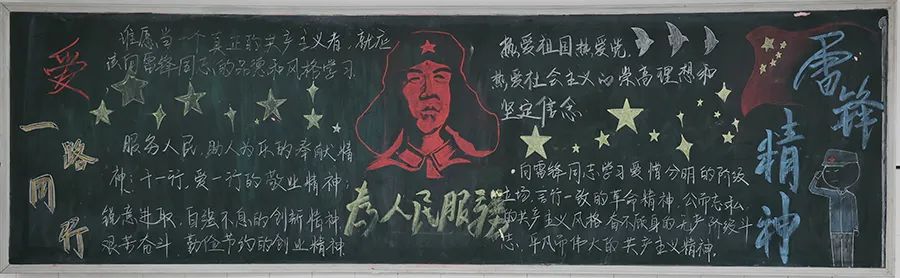 爱
一路同行
谁愿当一个真正的共产主义者，就应
该向雷锋同志的品德和风格学习
服务人民、助人为乐的奉献精
神；干一行、爱一行的敬业精神；
锐意进取、自强不息的创新精神
艰苦奋斗 勤俭节约的创业精神
为人民服务
热爱祖国热爱党
热爱社会主义的崇高理想和
坚定信念
·向雷锋同志学习爱憎分明的阶级
立场、言行一致的革命精神、公而忘私
的共产主义风格 奋不顾身的无产阶级斗
志、平凡而伟大的共产主义精神。
雷锋
精神